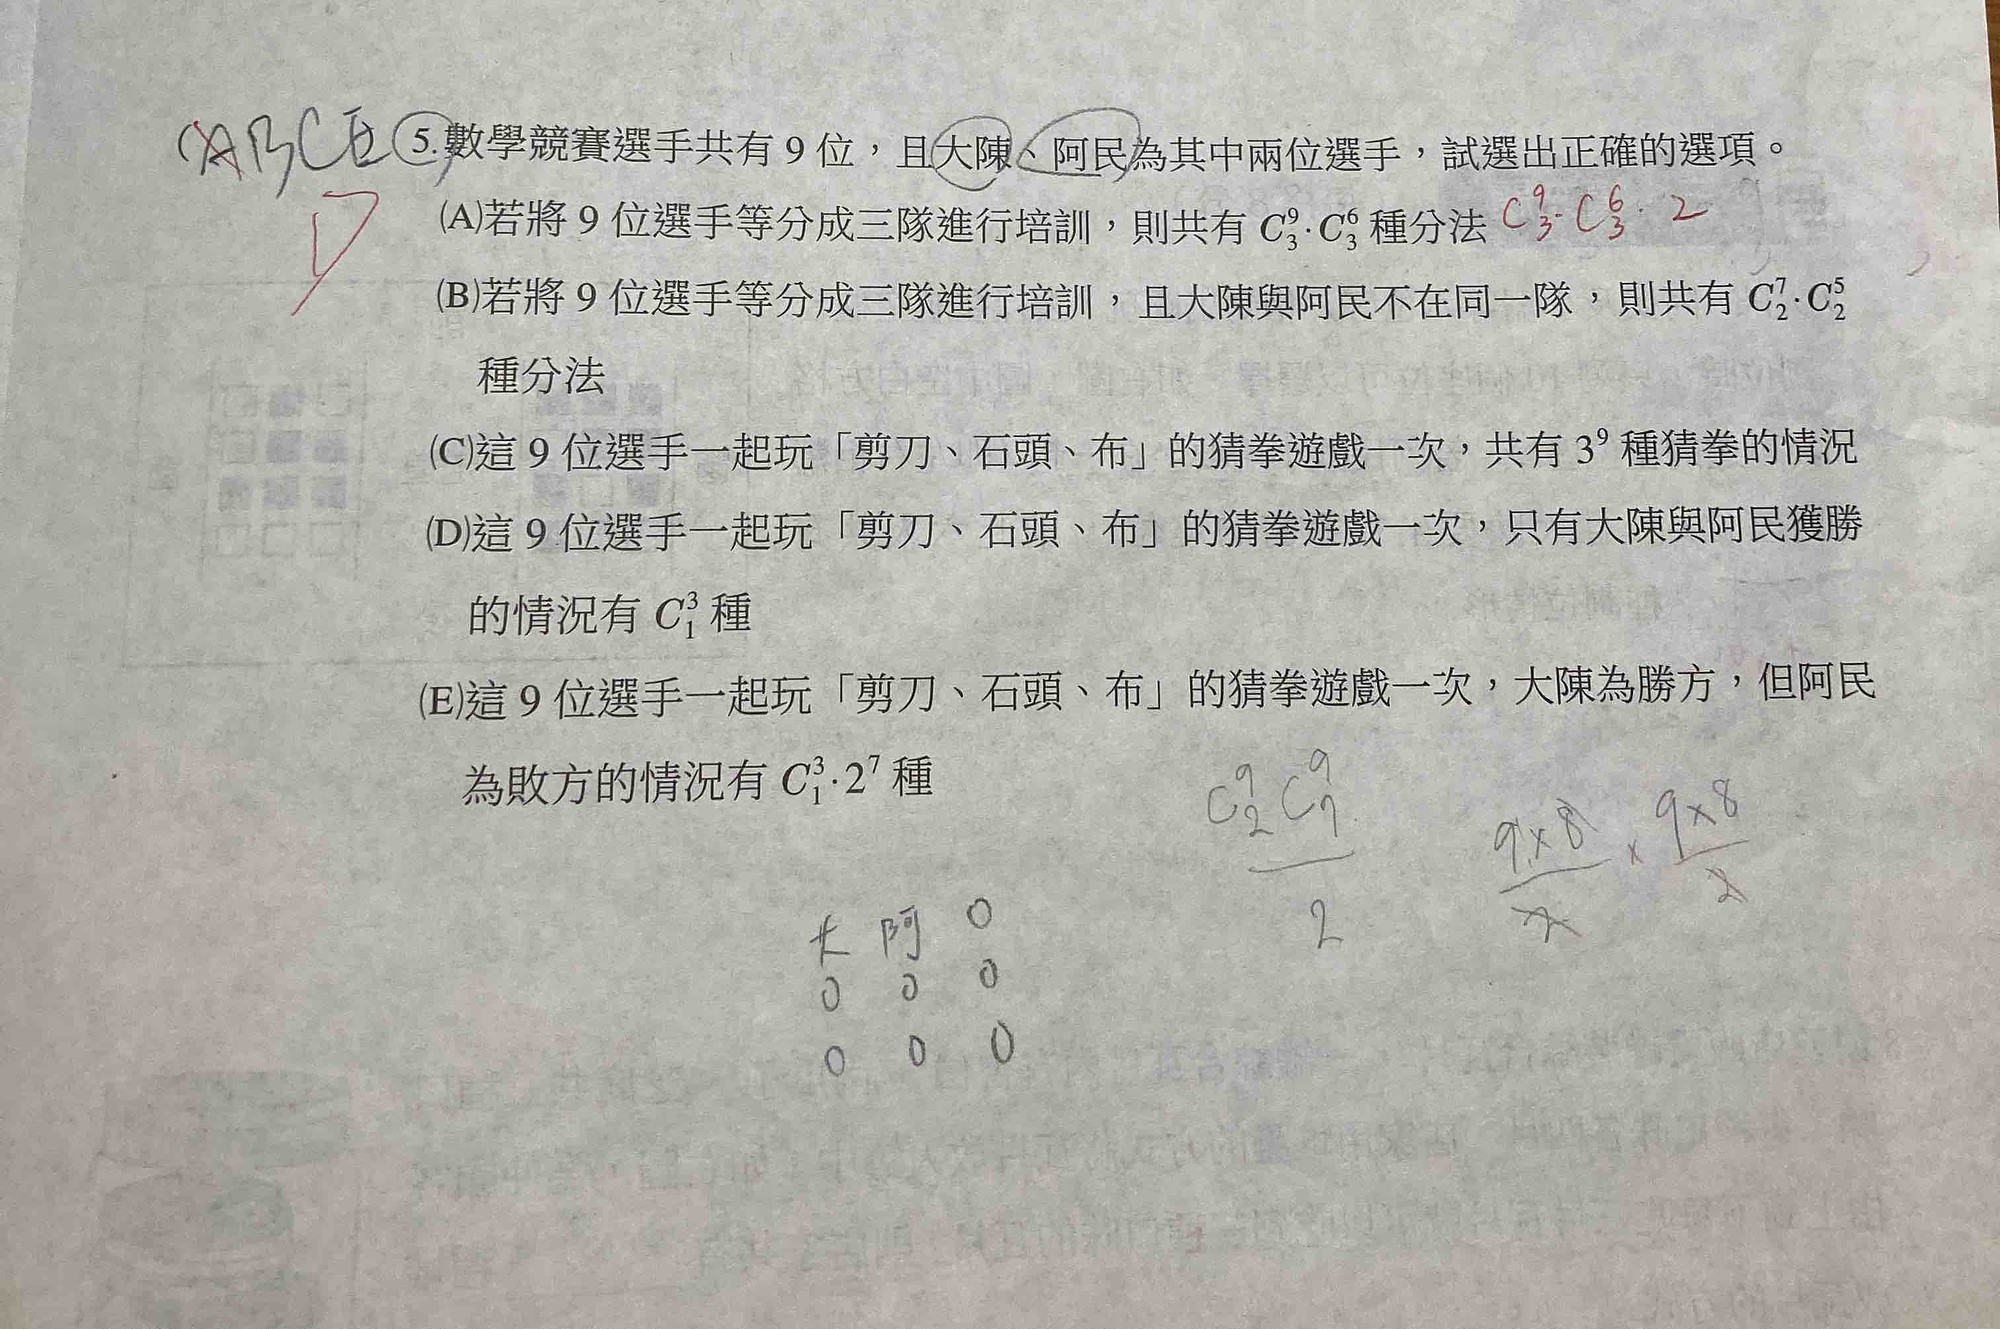 ABCE 5.數學競賽選手共有 9 位，且大陳、阿民為其中兩位選手，試選出正確的選項。
D
(A)若將 9 位選手等分成三隊進行培訓，則共有 C⁹₃·C⁶₃ 種分法 C⁹₃·C⁶₃·2
(B)若將 9 位選手等分成三隊進行培訓，且大陳與阿民不在同一隊，則共有 C⁷₂·C⁵₂
種分法
(C)這 9 位選手一起玩「剪刀、石頭、布」的猜拳遊戲一次，共有 3⁹ 種猜拳的情況
(D)這 9 位選手一起玩「剪刀、石頭、布」的猜拳遊戲一次，只有大陳與阿民獲勝
的情況有 C³₁ 種
(E)這 9 位選手一起玩「剪刀、石頭、布」的猜拳遊戲一次，大陳為勝方，但阿民
為敗方的情況有 C³₁·2⁷ 種
C⁹₂ C⁹₇
2
9×8 × 9×8
2 2
大 阿 0
0 0 0
0 0 0